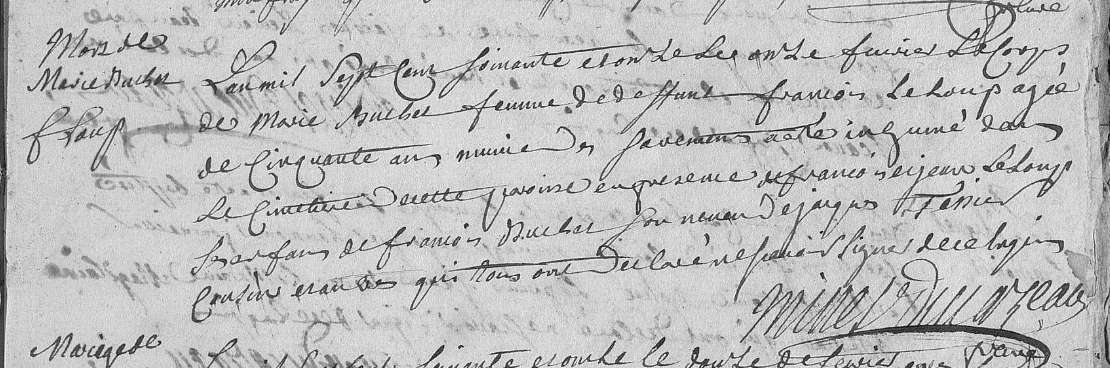 Mort de
Marie Buchet
f Loup
L'an mil Sept Cent soixante et onze le onze fevrier Le Corps
de Marie Buchet femme de deffunt francois Le Loup agée
de Cinquante ans munie des sacremens a este inhumé dans
Le Cimetiere de cette paroisse en presence de francois et jean Le Loup
ses enfans de francois Buchet son neveu de jacques Tessier
Cousin et autres qui tous ont declaré ne scavoir signer de ce enquis
Mariage de
soixante et onze le douze de fevrier